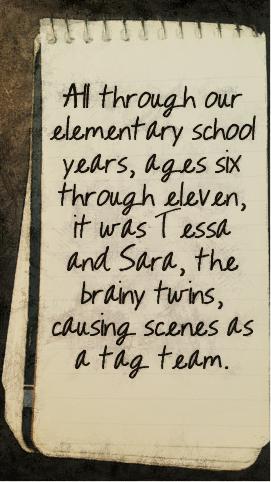 All through our
elementary school
years, ages six
through eleven,
it was Tessa
and Sara, the
brainy twins,
causing scenes as
a tag team.